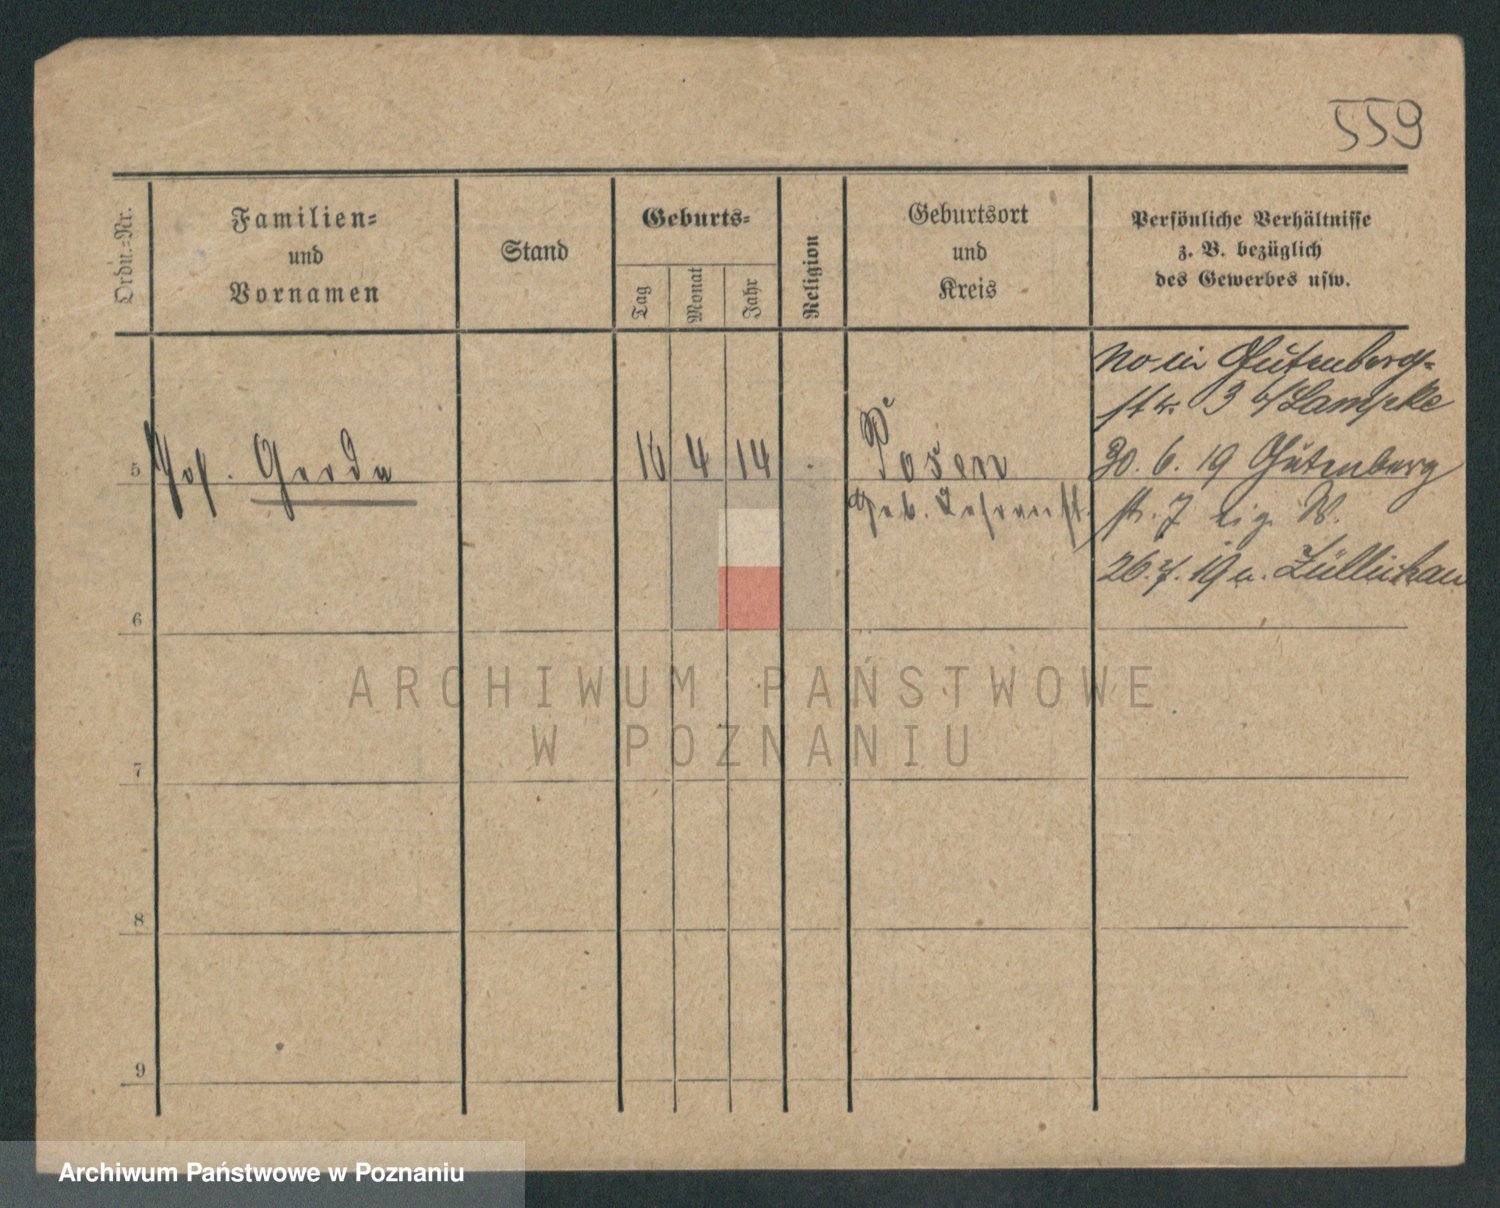 559
Ordn.=Nr.
Familien=
und
Vornamen
Stand
Geburts=
Tag
Monat
Jahr
Religion
Geburtsort
und
Kreis
Persönliche Verhältnisse
z. B. bezüglich
des Gewerbes usw.
Gutenberg-
str. 3 b/Lampke
5
Gerda
16 4 14
Posen
30. 6. 19 Gutenberg
Geb.
str. 7 eig. W.
26. 7. 19 n. Züllichau
6
7
8
9
ARCHIWUM PAŃSTWOWE
W POZNANIU
Archiwum Państwowe w Poznaniu